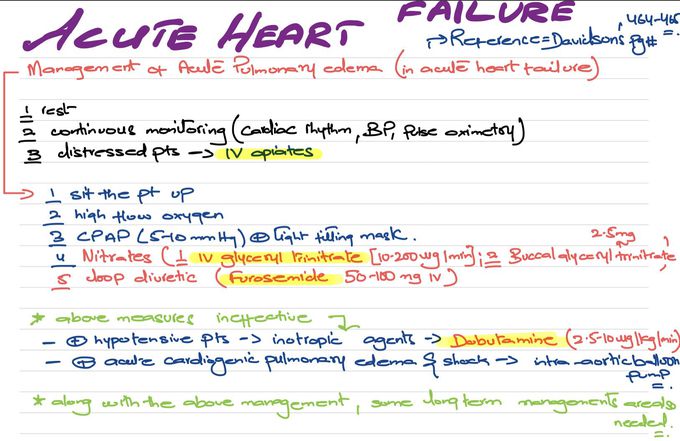 ACUTE HEART FAILURE
→ Reference = Davidsons, pg# 464-465
Management of Acute Pulmonary edema (in acute heart failure)
1 rest
2 continuous monitoring (cardiac rhythm, BP, pulse oximetry)
3 distressed pts → IV opiates
1 sit the pt up
2 high flow oxygen
3 CPAP (5-10 mmHg) ⊕ tight fitting mask.
4 Nitrates (1 IV glyceryl trinitrate [10-200 ug/min]; 2 Buccal glyceryl trinitrate) 2.5mg
5 loop diuretic (Furosemide 50-100 mg IV)
* above measures ineffective
- ⊕ hypotensive pts → inotropic agents → Dobutamine (2.5-10 ug/kg/min)
- ⊕ acute cardiogenic pulmonary edema & shock → intra-aortic balloon
pump
* along with the above management, some long term managements are also
needed.